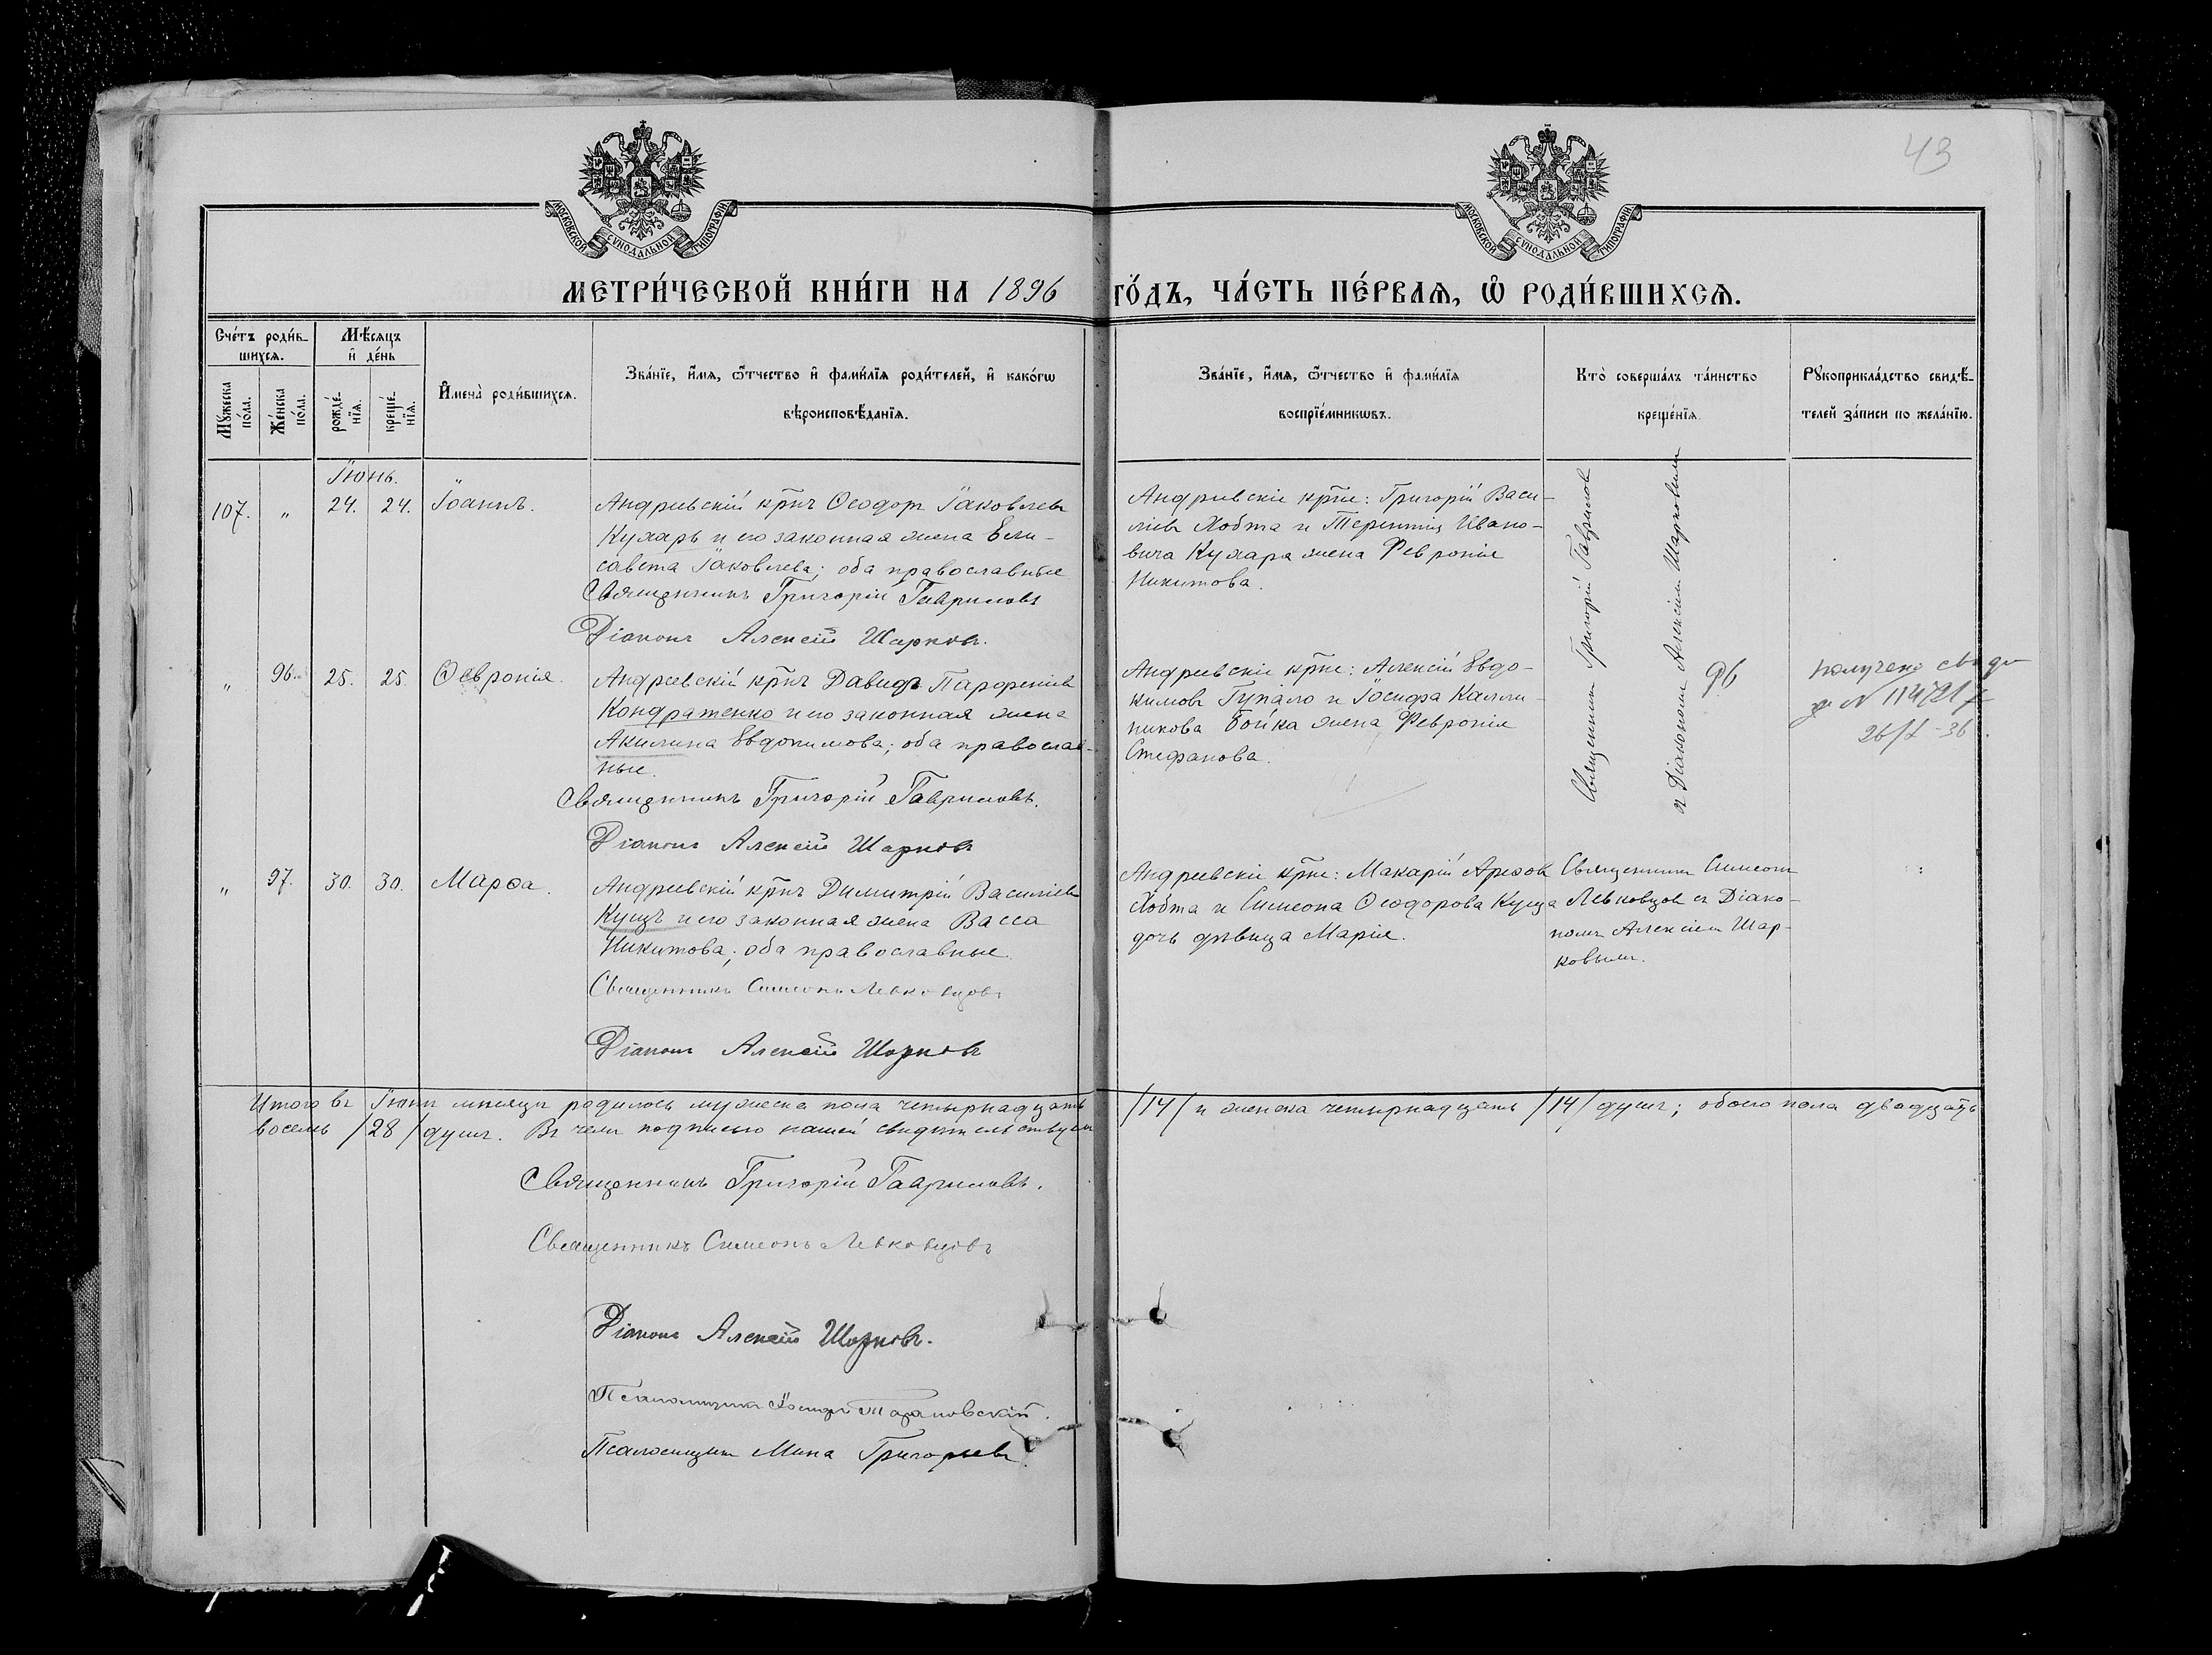 43
МОСКОВСКОЙ СУНОДАЛЬНОЙ ТИПОГРАФІИ
МОСКОВСКОЙ СУНОДАЛЬНОЙ ТИПОГРАФІИ
МЕТРИ́ЧЕСКОЙ КНИ́ГИ НА 1896 ГО́ДЪ, ЧА́СТЬ ПЕ́РВАѦ, Ѡ҆ РОДИ́ВШИХСѦ.
Сче́тъ роди́в-
шихсѧ.
Мѣ́сѧцъ
и҆ де́нь
Мꙋ́жеска
по́ла.
Же́нска
по́ла.
рожде́-
нїѧ.
креще́-
нїѧ.
И҆мена̀ роди́вшихсѧ.
Зва́нїе, и҆́мѧ, ѻ҆́тчество и҆ фами́лїѧ роди́телей, и҆ како́гѡ
вѣроисповѣ́данїѧ.
Зва́нїе, и҆́мѧ, ѻ҆́тчество и҆ фами́лїѧ
воспрїе́мникѡвъ.
Кто̀ соверша́лъ та́инство
креще́нїѧ
Рꙋкоприкла́дство свидѣ́-
телей за́писи по жела́нїю.
Іюнь.
107. „ 24. 24. Іоаннъ.
Андреевскій крнъ Ѳеодоръ Іаковлевъ
Кухарь и его законная жена Ели-
савета Іаковлева; оба православные
Священникъ Григорій Гавриловъ
Діаконъ Алексій Шарковъ.
Андреевскіе крне: Григорій Васи-
ліевъ Хобта и Терентія Ивано-
вича Кухаря жена Февронія
Никитова.
Священникъ Григорій Гавриловъ
съ Діакономъ Алексіемъ Шарковымъ
„ 96. 25. 25. Ѳевронія.
Андреевскій крнъ Давидъ Парѳеніевъ
Кондратенко и его законная жена
Акилина Евдокимова; оба православ-
ные.
Священникъ Григорій Гавриловъ.
Діаконъ Алексій Шарковъ
Андреевскіе крне: Алексій Евдо-
кимовъ Гупало и Іосифа Калли-
никова Бойка жена Февронія
Стефанова.
96
получено свиде
№
„ 97. 30. 30. Марѳа.
Андреевскій крнъ Димитрій Василіевъ
Кущъ и его законная жена Васса
Никитова; оба православные.
Священникъ Симеонъ Левковцовъ
Діаконъ Алексій Шарковъ
Андреевскіе крне: Макарій
Хобта и Симеона Ѳеодорова Куща
дочь дѣвица Марія.
Священникъ Симеонъ
Левковцовъ съ Діако-
номъ Алексіемъ Шар-
ковымъ.
Итого въ Іюнѣ мѣсяцѣ родилось мужеска пола четырнадцать /14/ и женска четырнадцать /14/ душъ; обоего пола двадцать
восемь /28/ душъ. Въ чемъ подписью нашей свидѣтельствуемъ
Священникъ Григорій Гавриловъ.
Священникъ Симеонъ Левковцовъ
Діаконъ Алексій Шарковъ.
Псаломщикъ Іосифъ Тарановскій.
Псаломщикъ Мина Григорьевъ.